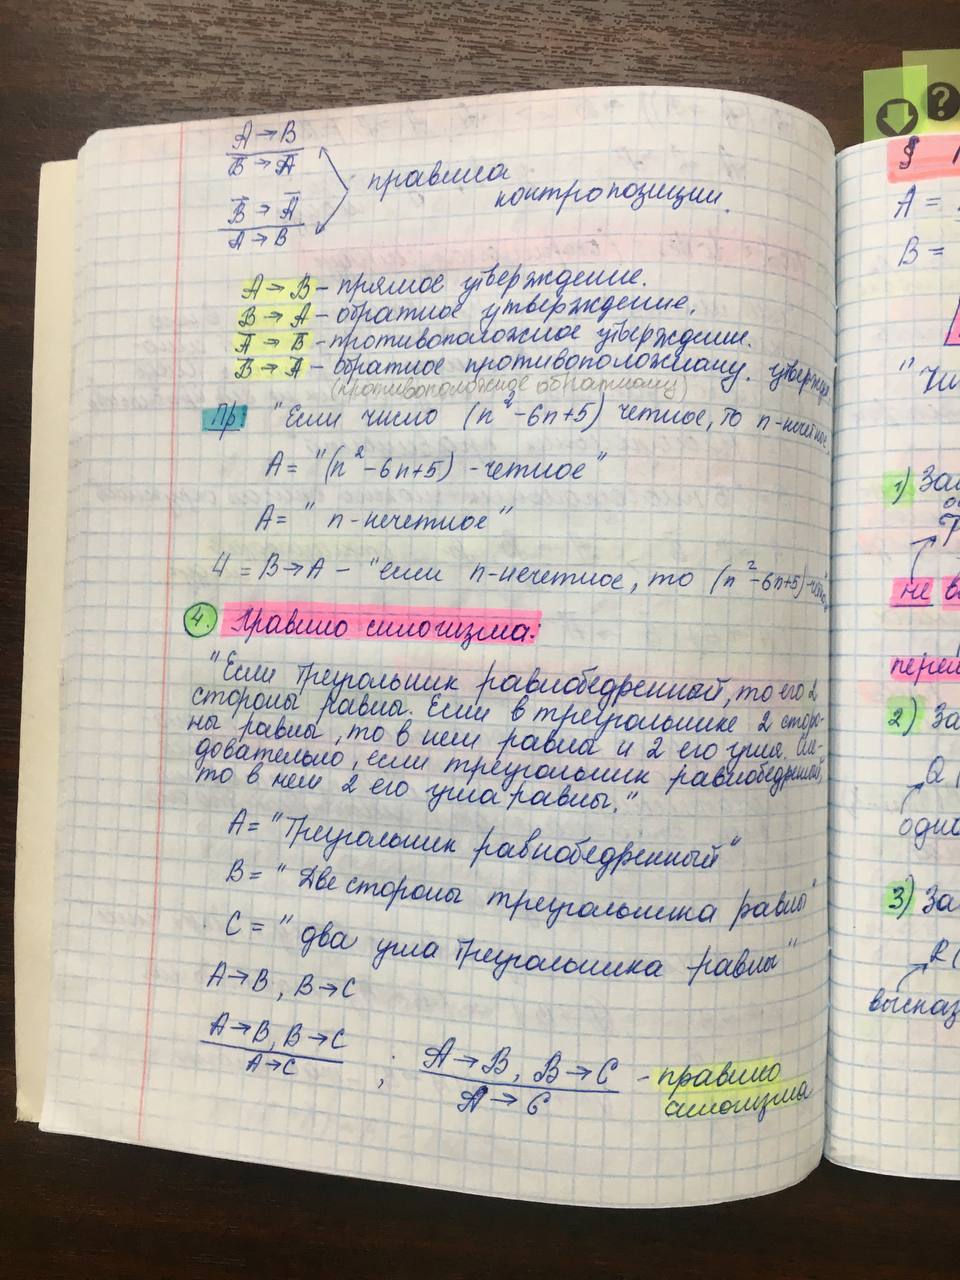 A→B
B̅→A̅
B̅→A̅
A→B
правила
контропозиции.
A→B - прямое утверждение.
B→A - обратное утверждение.
A̅→B̅ - противоположное утверждение.
B̅→A̅ - обратное противоположному. утвержд.
(противоположное обратному)
Пр: "Если число (n²-6n+5) четное, то n-нечетное,
A= "(n²-6n+5) -четное"
A= "n-нечетное"
Ч = B→A - "если n-нечетное, то (n²-6n+5)-четн"
4. Правило силогизма:
"Если треугольник равнобедренный, то его 2
стороны равны. Если в треугольнике 2 сторо-
ны равны, то в нем равна и 2 его угла. Сле-
довательно, если треугольник равнобедренный,
то в нем 2 его угла равны."
A= "Треугольник равнобедренный"
B= "Две стороны треугольника равны"
C= "два угла треугольника равны"
A→B, B→C
A→B, B→C
A→C
;
A→B, B→C
A→C
- правило
силогизма
?
§
A =
B =
1) За
не
перей
2) За
Q (
одно
3) За
R (
высказ